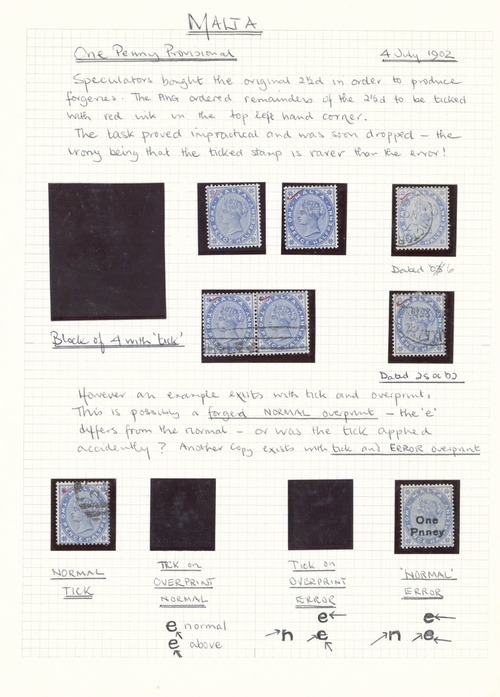 MALTA
One Penny Provisional 4 July 1902
Speculators bought the original 2½d in order to produce
forgeries. The PMG ordered remainders of the 2½d to be ticked
with red ink in the top left hand corner.
The task proved impractical and was soon dropped – the
irony being that the ticked stamp is rarer than the error!
Dated
Block of 4 with 'tick'
Dated 25 oc 02
However an example exits with tick and overprint,
This is possibly a forged NORMAL overprint – the 'e'
differs from the normal – or was the tick applied
accidently? Another copy exists with tick and ERROR overprint
One
Pnney
NORMAL
TICK
Tick on
OVERPRINT
NORMAL
Tick on
OVERPRINT
ERROR
'NORMAL'
ERROR
e normal
e above
e
n e
e
n e